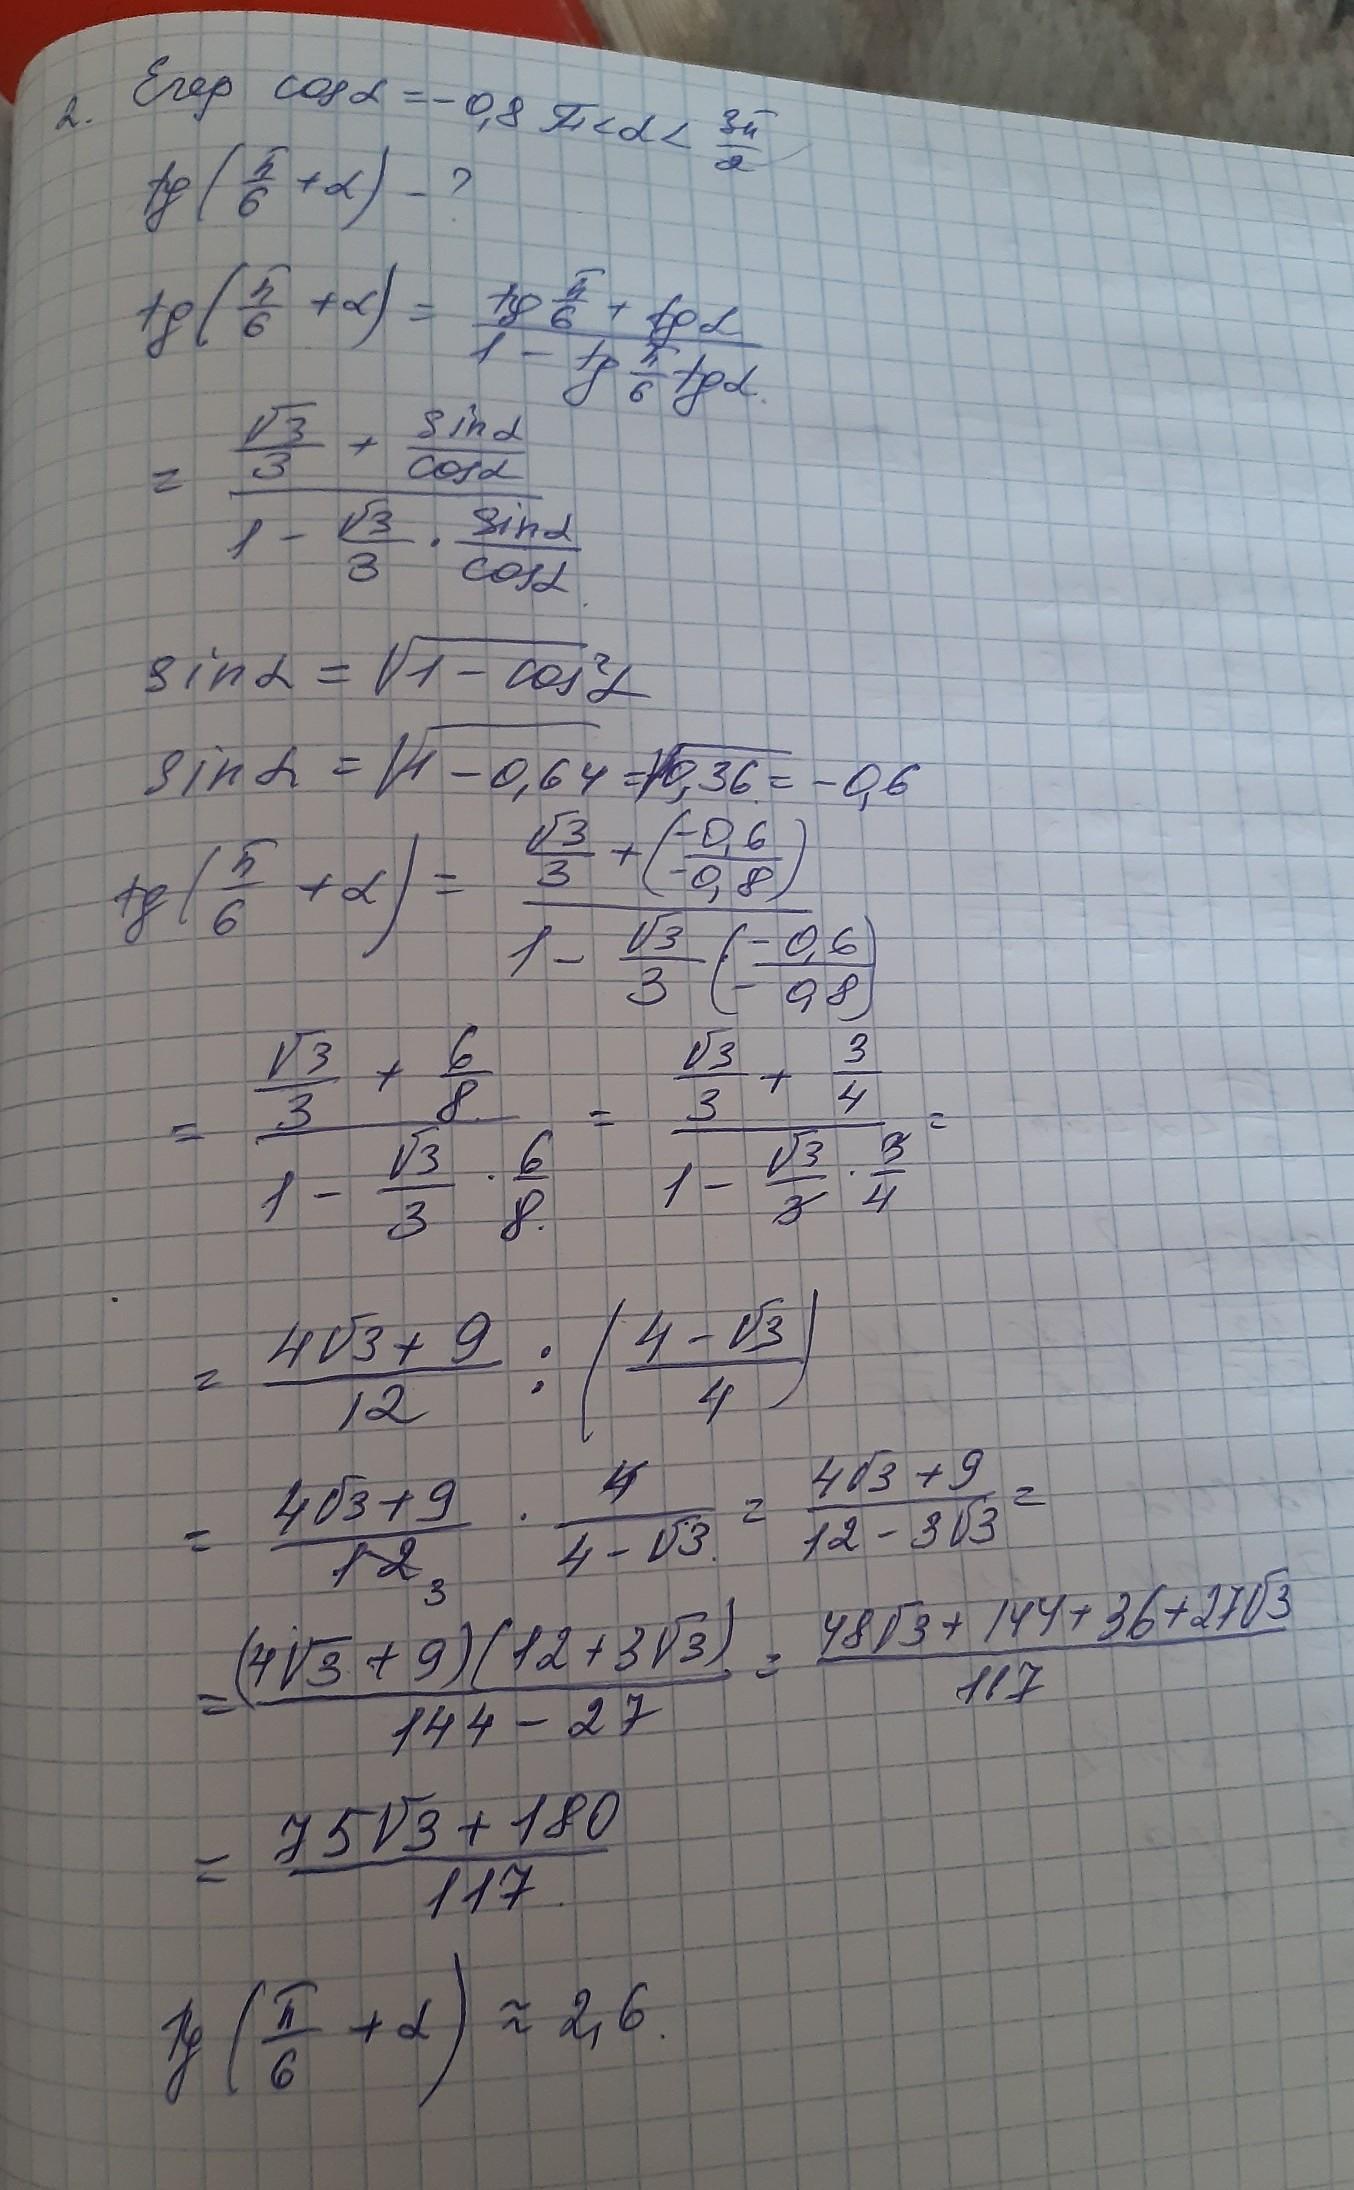 2. Егер cosα = -0,8 π < α < 3π/2
tg(π/6 + α) - ?
tg(π/6 + α) = (tg π/6 + tgα)/(1 - tg π/6 tgα)
= (√3/3 + sinα/cosα)/(1 - √3/3 · sinα/cosα)
sinα = √(1 - cos²α)
sinα = √(1 - 0,64) = √0,36 = -0,6
tg(π/6 + α) = (√3/3 + (-0,6/-0,8))/(1 - √3/3 (-0,6/-0,8))
= (√3/3 + 6/8)/(1 - √3/3 · 6/8) = (√3/3 + 3/4)/(1 - √3/3 · 3/4) =
= (4√3 + 9)/12 : ((4 - √3)/4)
= (4√3 + 9)/12 3 · 4/(4 - √3) = (4√3 + 9)/(12 - 3√3) =
= (4√3 + 9)(12 + 3√3)/(144 - 27) = (48√3 + 144 + 36 + 27√3)/117
= (75√3 + 180)/117
tg(π/6 + α) ≈ 2,6.